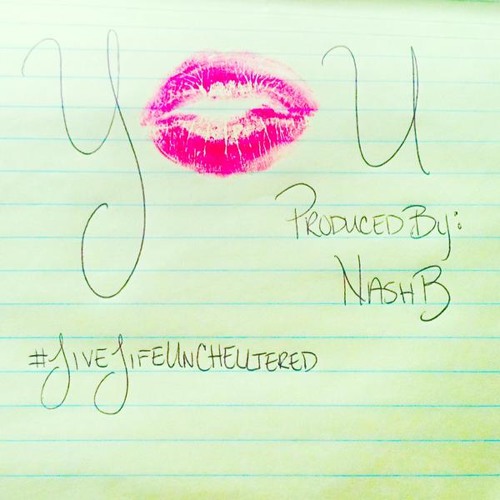 Y U
Produced By:
Nash B
#LiveLifeUnCheltered